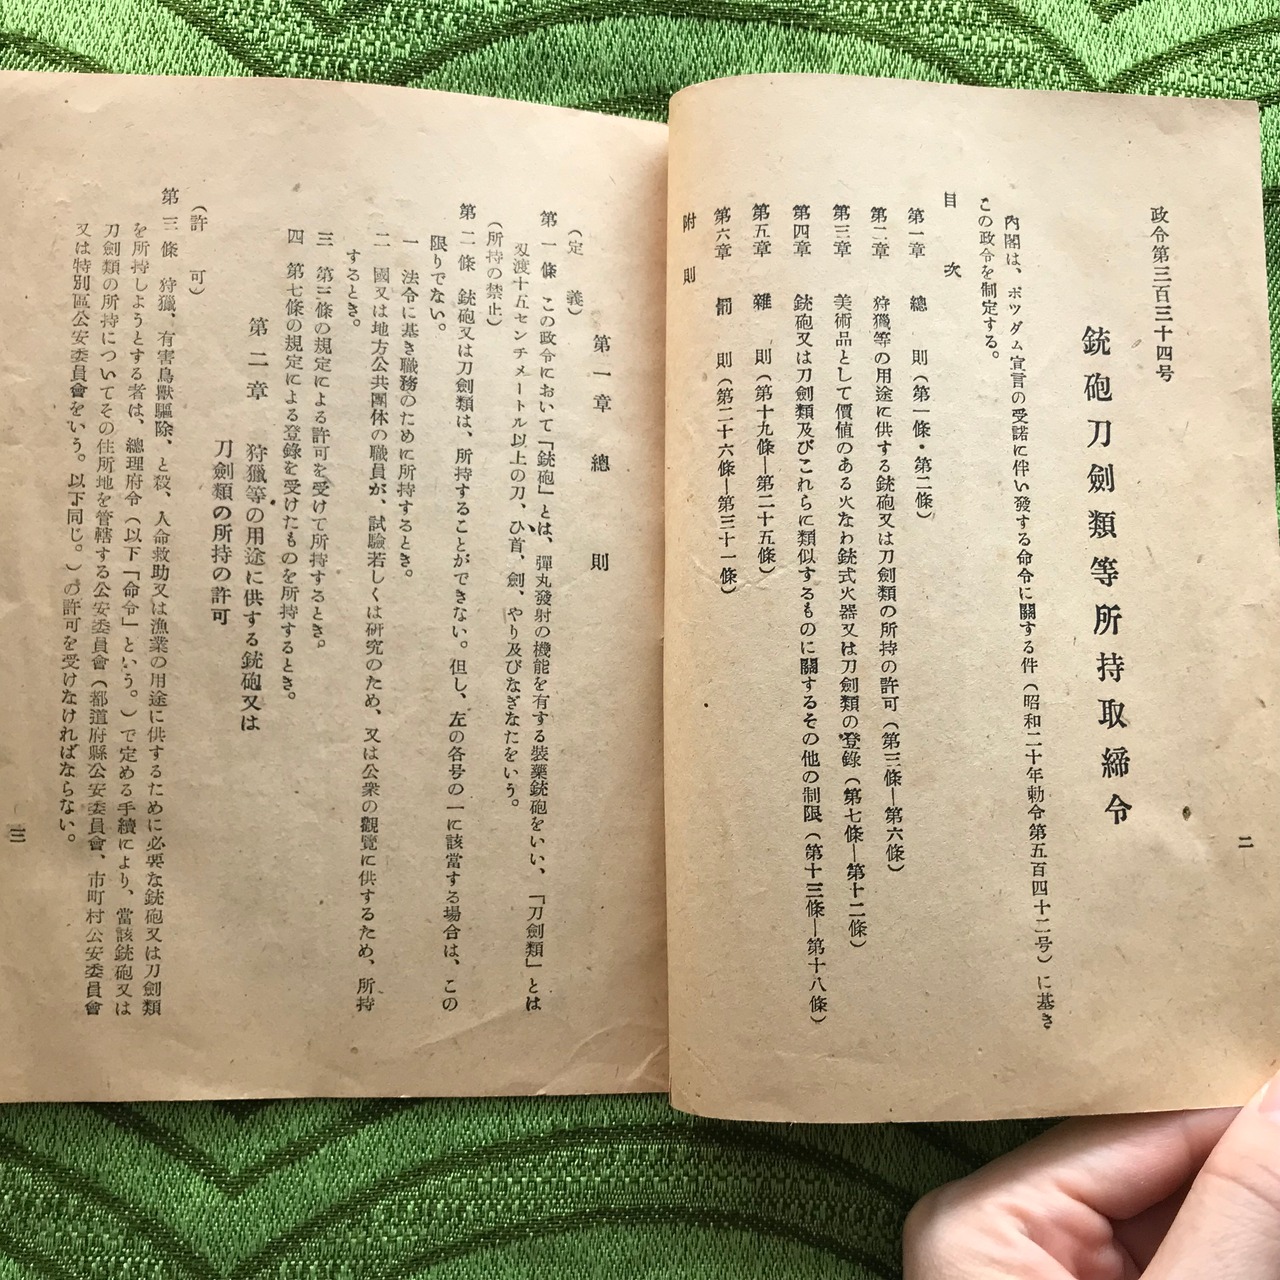 二
政令第三百三十四号
銃砲刀劍類等所持取締令
内閣は、ポツダム宣言の受諾に伴い發する命令に關する件（昭和二十年勅令第五百四十二号）に基き
この政令を制定する。
目次
第一章　總　則（第一條・第二條）
第二章　狩獵等の用途に供する銃砲又は刀劍類の所持の許可（第三條—第六條）
第三章　美術品として價値のある火なわ銃式火器又は刀劍類の登錄（第七條—第十二條）
第四章　銃砲又は刀劍類及びこれらに類似するものに關するその他の制限（第十三條—第十八條）
第五章　雜　則（第十九條—第二十五條）
第六章　罰　則（第二十六條—第三十一條）
附則
第一章　總　則
（定　義）
第一條　この政令において「銃砲」とは、彈丸發射の機能を有する裝藥銃砲をいい、「刀劍類」とは
刄渡十五センチメートル以上の刀、ひ首、劍、やり及びなぎなたをいう。
（所持の禁止）
第二條　銃砲又は刀劍類は、所持することができない。但し、左の各号の一に該當する場合は、この
限りでない。
一　法令に基き職務のために所持するとき。
二　國又は地方公共團体の職員が、試驗若しくは研究のため、又は公衆の觀覽に供するため、所持
するとき。
三　第三條の規定による許可を受けて所持するとき。
四　第七條の規定による登錄を受けたものを所持するとき。
第二章　狩獵等の用途に供する銃砲又は
刀劍類の所持の許可
（許　可）
第三條　狩獵、有害鳥獸驅除、と殺、人命救助又は漁業の用途に供するために必要な銃砲又は刀劍類
を所持しようとする者は、總理府令（以下「命令」という。）で定める手續により、當該銃砲又は
刀劍類の所持についてその住所地を管轄する公安委員會（都道府縣公安委員會、市町村公安委員會
又は特別區公安委員會をいう。以下同じ。）の許可を受けなければならない。
三